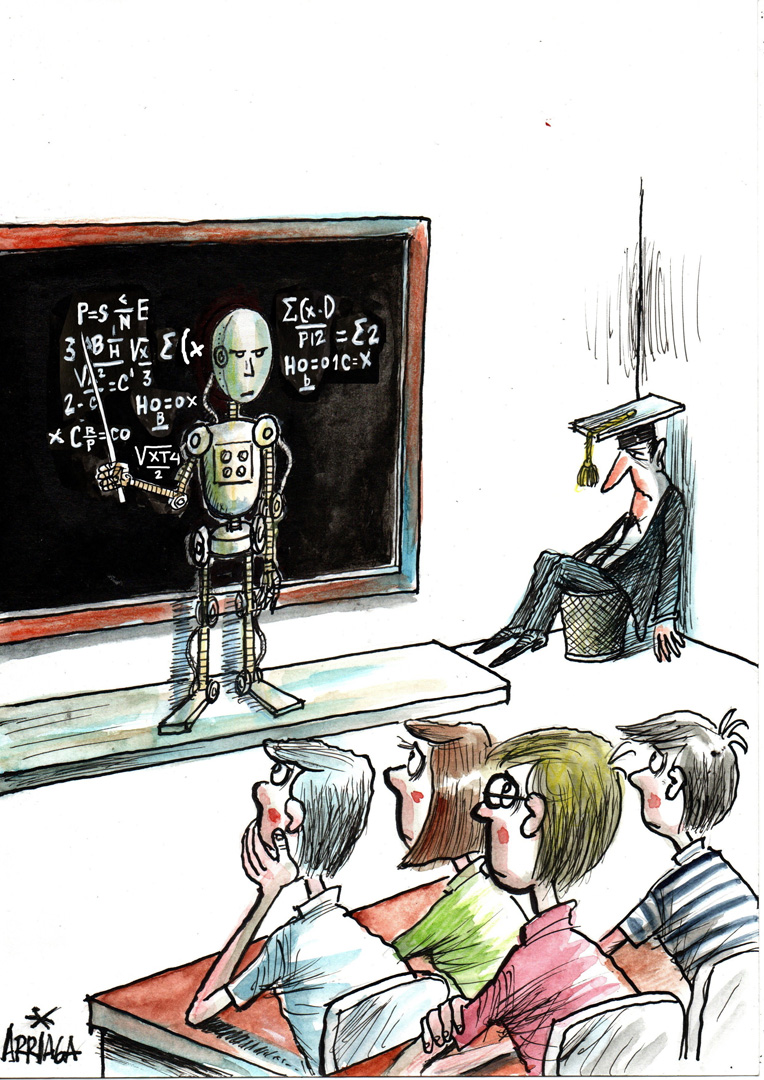 P=S ε/N E
3 B 1/H √x/3 Σ(x
2·C =C'
HO=0X
B
x C R/P=CO
√XT4
2
Σ(x-D
P12 = Σ2
HO=01C=X
b
ARRIAGA